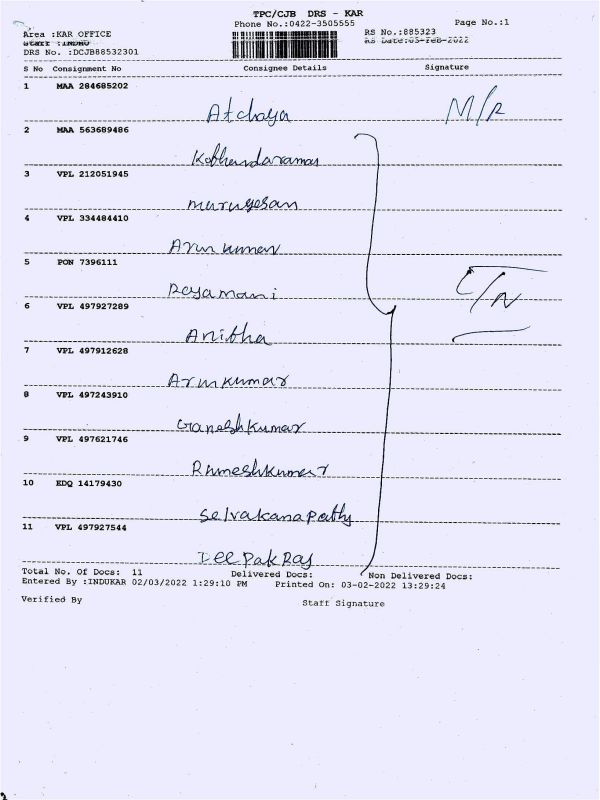 TPC/CJB DRS - KAR
Phone No.:0422-3505555
Page No.:1
Area :KAR OFFICE
RS No.:885323
Staff :INDHU
RS Date:03-Feb-2022
DRS No. :DCJB88532301
S No Consignment No Consignee Details Signature
1 MAA 284685202
Atchaya M/R
2 MAA 563689486
Kothandaraman
3 VPL 212051945
murugesan
4 VPL 334484410
Arun kumar
5 PON 7396111
Rajamani
6 VPL 497927289
Anitha
7 VPL 497912628
Arunkumar
8 VPL 497243910
Ganeshkumar
9 VPL 497621746
Rameshkumar
10 EDQ 14179430
Selvakanapathy
11 VPL 497927544
Deepak Raj
Total No. Of Docs: 11 Delivered Docs: Non Delivered Docs:
Entered By :INDUKAR 02/03/2022 1:29:10 PM Printed On: 03-02-2022 13:29:24
Verified By Staff Signature